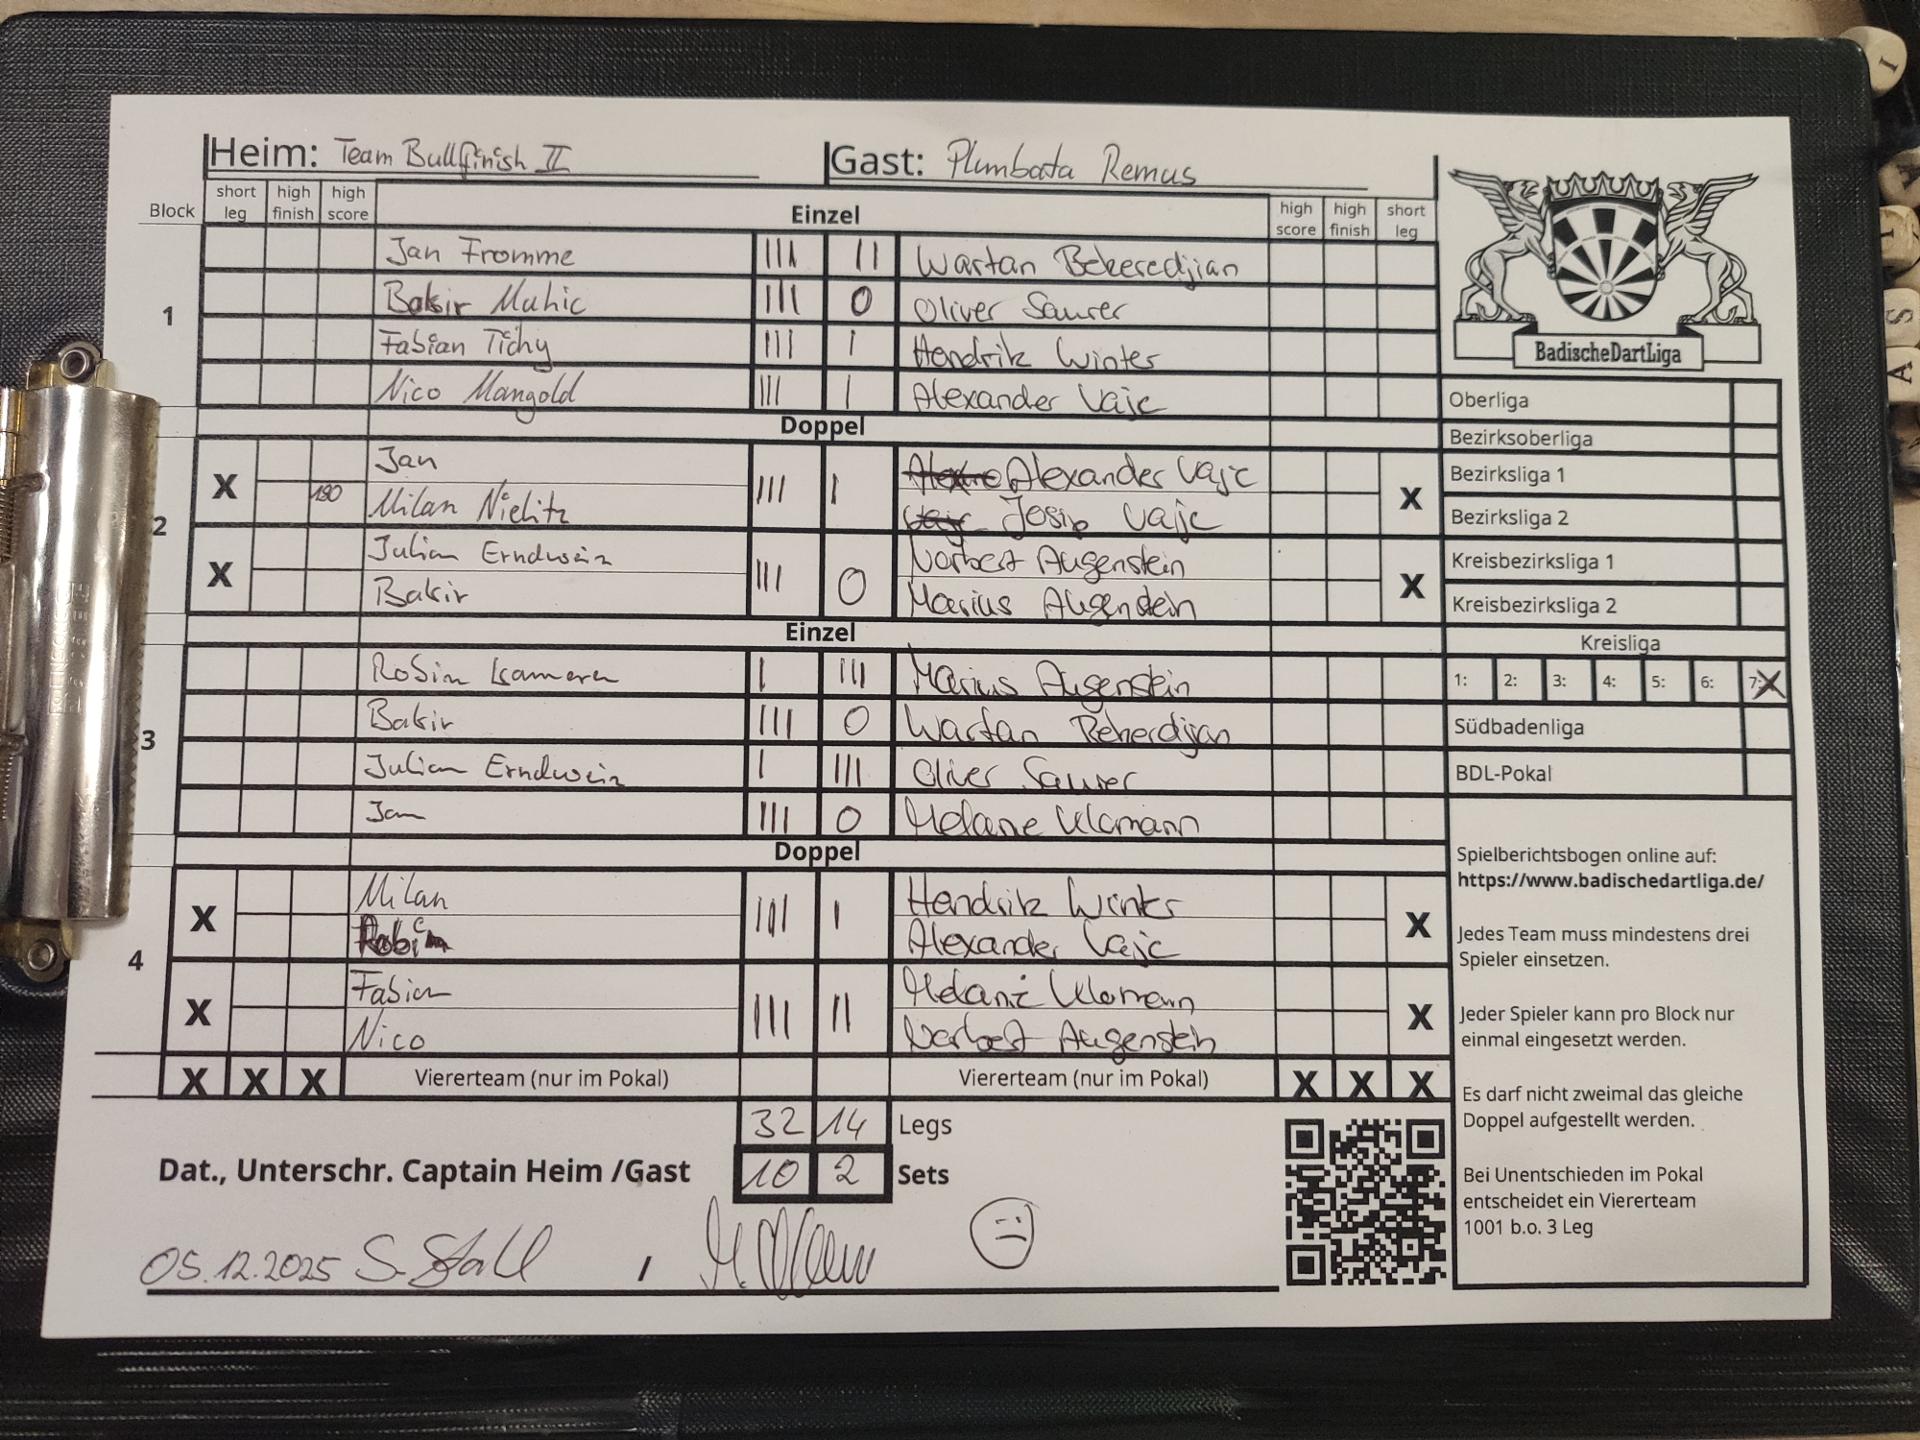 Heim: Team Bullfinish II Gast: Plumbata Remus
Block short leg high finish high score Einzel high score high finish short leg
1
Jan Fromme III II Wartan Bekeredjian
Bakir Muhic III 0 Oliver Saurer
Fabian Tichy III I Hendrik Winter
Nico Mangold III I Alexander Vajc
Doppel
2
X Jan III I Alexander Vajc X
180 Milan Nielitz Josip Vajc
X Julian Erndwein III 0 Norbert Augenstein X
Bakir Marius Augenstein
Einzel
3
Robin Kamerer I III Marius Augenstein
Bakir III 0 Wartan Beherdijan
Julian Erndwein I III Oliver Saurer
Jan III 0 Melanie Ulomann
Doppel
4
X Milan III I Hendrik Winter X
Robin Alexander Vajc
X Fabian III II Melanie Ulomann X
Nico Norbert Augenstein
X X X Viererteam (nur im Pokal) Viererteam (nur im Pokal) X X X
32 14 Legs
Dat., Unterschr. Captain Heim /Gast 10 2 Sets
05.12.2025 S. Stall /
BadischeDartLiga
Oberliga
Bezirksoberliga
Bezirksliga 1
Bezirksliga 2
Kreisbezirksliga 1
Kreisbezirksliga 2
Kreisliga
1: 2: 3: 4: 5: 6: 7: X
Südbadenliga
BDL-Pokal
Spielberichtsbogen online auf:
https://www.badischedartliga.de/
Jedes Team muss mindestens drei
Spieler einsetzen.
Jeder Spieler kann pro Block nur
einmal eingesetzt werden.
Es darf nicht zweimal das gleiche
Doppel aufgestellt werden.
Bei Unentschieden im Pokal
entscheidet ein Viererteam
1001 b.o. 3 Leg
I
S
A